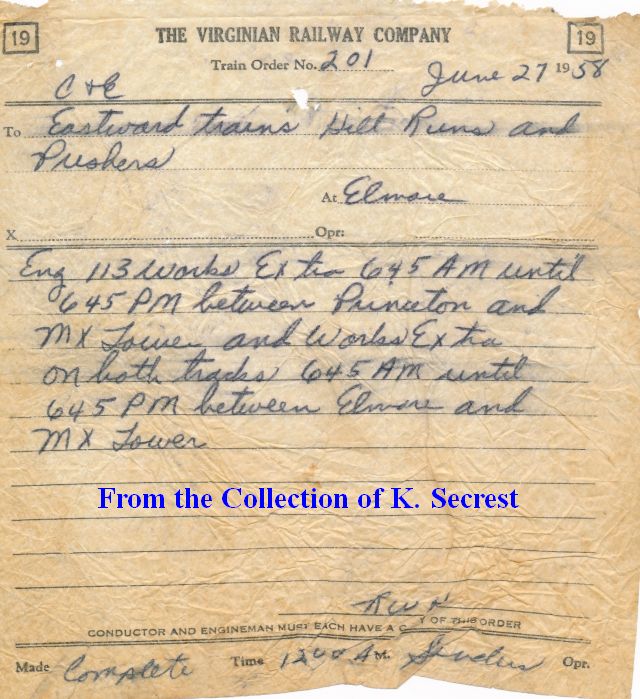 19 THE VIRGINIAN RAILWAY COMPANY 19
Train Order No. 201 June 27 1958
C & E
To Eastward trains Hill Runs and
Pushers
At Elmore
X Opr:
Eng 113 Works Extra 645 AM until
645 PM between Princeton and
MX Tower and Works Extra
on both tracks 645 AM until
645 PM between Elmore and
MX Tower
From the Collection of K. Secrest
CONDUCTOR AND ENGINEMAN MUST EACH HAVE A C Y OF THIS ORDER
Made Complete Time 1240 A M. Opr.